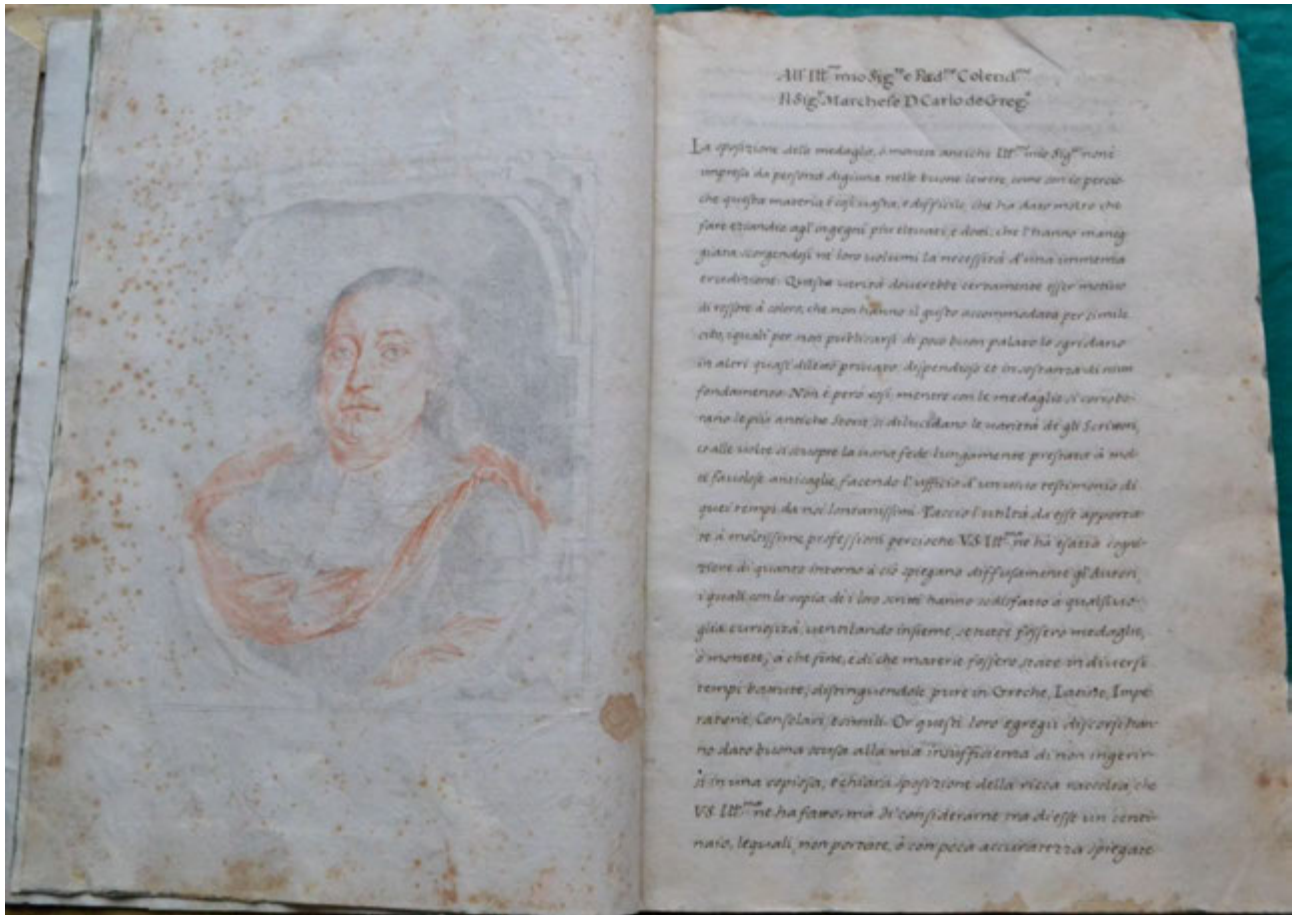 All' Ill.mo mio Sig.re e Pad.ne Colend.mo
Il Sig.r Marchese D. Carlo de Greg.o
La sposizione delle medaglie, ò monete antiche Ill.mo mio Sig.re non è
impresa da persona digiuna nelle buone lettere, come son io percio-
che questa materia è così vasta, e difficile, che ha dato molto che
fare eziandio agl'ingegni più elevati, e dotti, che l'hanno maneg-
giata scorgendosi ne' loro volumi la necessità d'una immensa
erudizione. Questa verità doverebbe certamente esser motivo
di rossore à coloro, che non hanno il gusto accommodato per simile
cibo, i quali per non publicarsi di poco buon palato lo sgridano
in altri quasi diletto privato, dispendioso et in sostanza di niun
fondamento. Non è però così, mentre con le medaglie si corrobo-
rano le più antiche Storie, si dilucidano le varietà de gli Scrittori,
et alle volte si scuopre la vana fede lungamente prestata à mol-
te favolose anticaglie, facendo l'ufficio d'un vivo testimonio di
quei tempi da noi lontanissimi. Taccio l'utilità da esse apporta-
te à moltissime professioni percioche V.S. Ill.ma ne ha esatta cogni-
zione di quanto intorno à ciò spiegano diffusamente gl'Autori,
i quali con la copia de i loro scritti hanno sodisfatto à qualsivo-
glia curiosità, ventilando insieme, se tutte fossero medaglie,
ò monete; à che fine, e di che materie fossero state in diversi
tempi battute; distinguendole pure in Greche, Latine, Impe-
ratorie, Consolari, e simili. Or questi loro egregii discorsi han-
no dato buona scusa alla mia insufficienza di non ingerir-
si in una copiosa, e chiara sposizione della ricca raccolta, che
V.S. Ill.ma ne ha fatto, mà di considerarne trà di esse un centi-
naio, le quali, non portate, ò con poca accuratezza spiegate